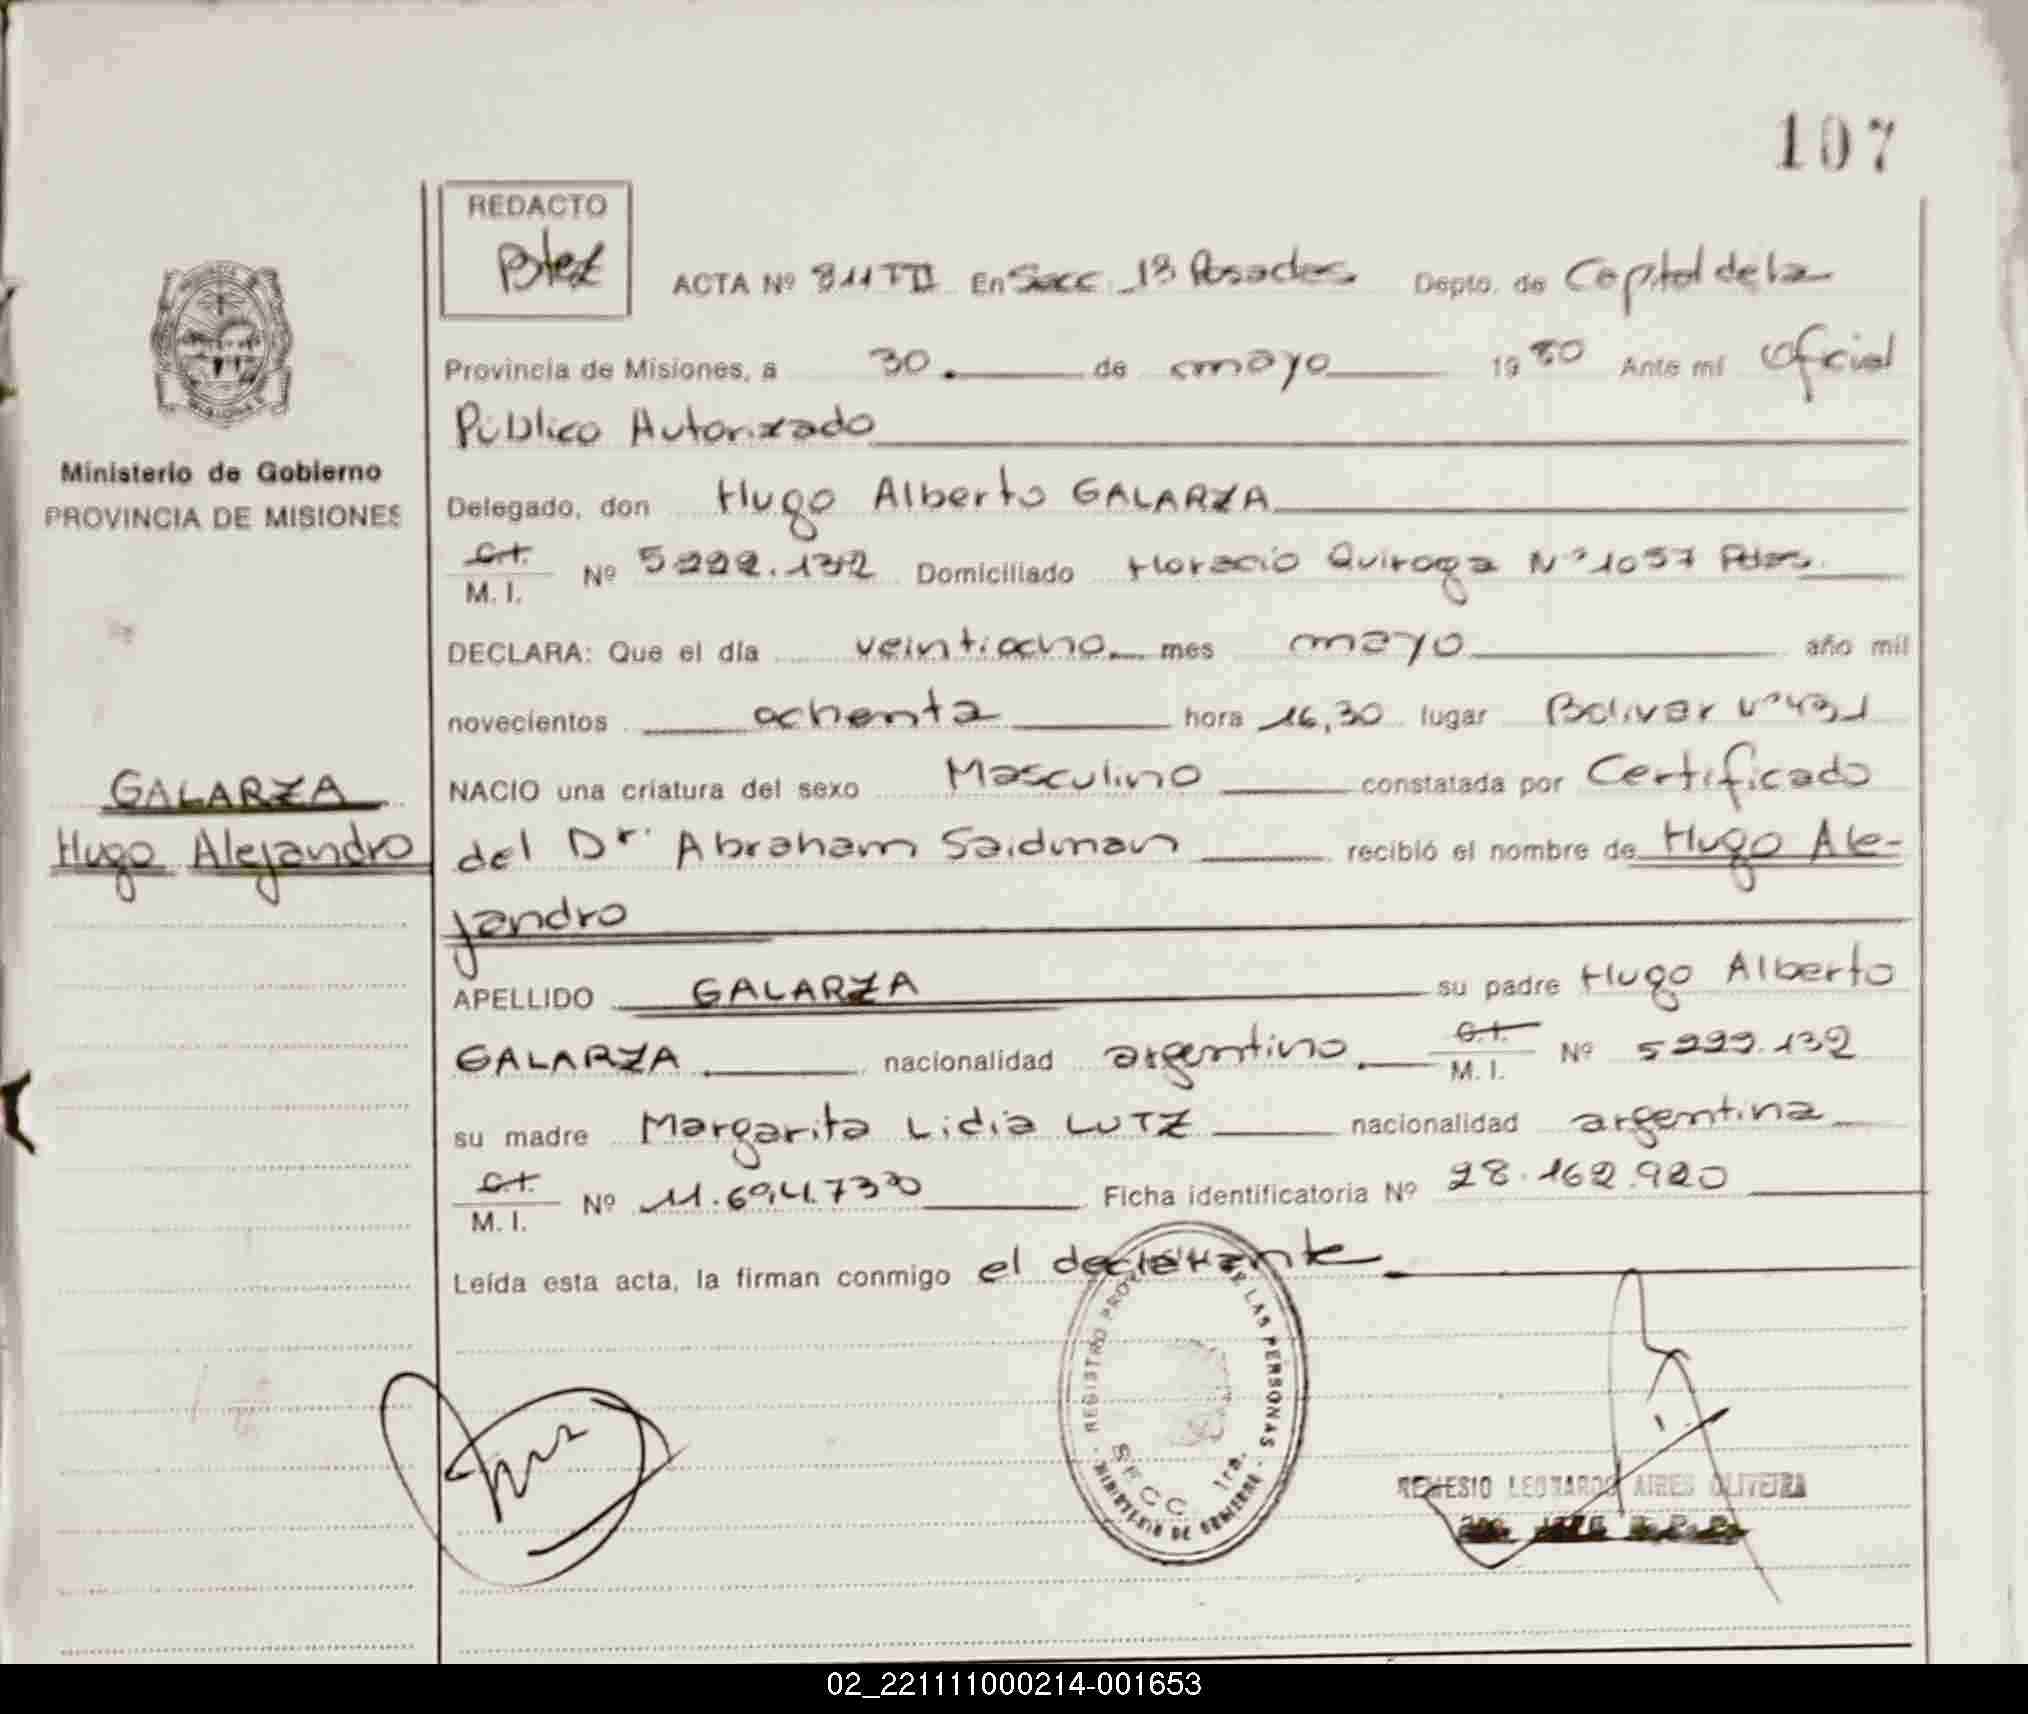 107
REDACTO
ACTA Nº 811 TII En Secc. 1ª Posadas Depto. de Capital de la
Provincia de Misiones, a 30 de mayo 1980 Ante mí Oficial
Público Autorizado
Ministerio de Gobierno
PROVINCIA DE MISIONES
Delegado, don Hugo Alberto GALARZA
C.I.
M. I. Nº 5.222.132 Domiciliado Horacio Quiroga Nº 1057 Pdas.
DECLARA: Que el día veintiocho mes mayo año mil
novecientos ochenta hora 16,30 lugar Bolivar Nº 431
GALARZA
Hugo Alejandro
NACIO una criatura del sexo Masculino constatada por Certificado
del Dr. Abraham Saidman recibió el nombre de Hugo Ale-
jandro
APELLIDO GALARZA su padre Hugo Alberto
GALARZA nacionalidad argentino C.I.
M. I. Nº 5.222.132
su madre Margarita Lidia LUTZ nacionalidad argentina
C.I.
M. I. Nº 11.694.730 Ficha identificatoria Nº 28.162.920
Leída esta acta, la firman conmigo el declarante
REGISTRO PROV DE LAS PERSONAS
SECC. 1ra.
MINISTERIO DE GOBIERNO
REMESIO LEONARDO AIRES OLIVEIRA
02_221111000214-001653